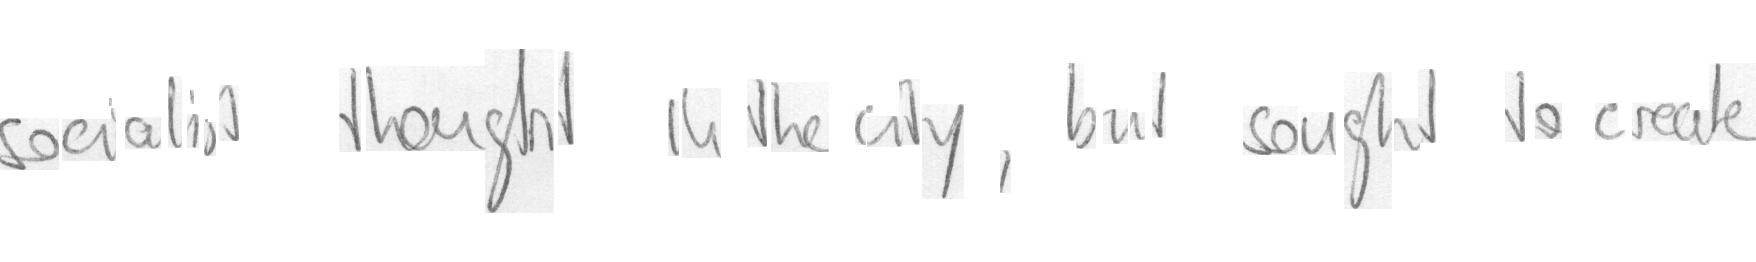 socialist thought in the city, but sought to create